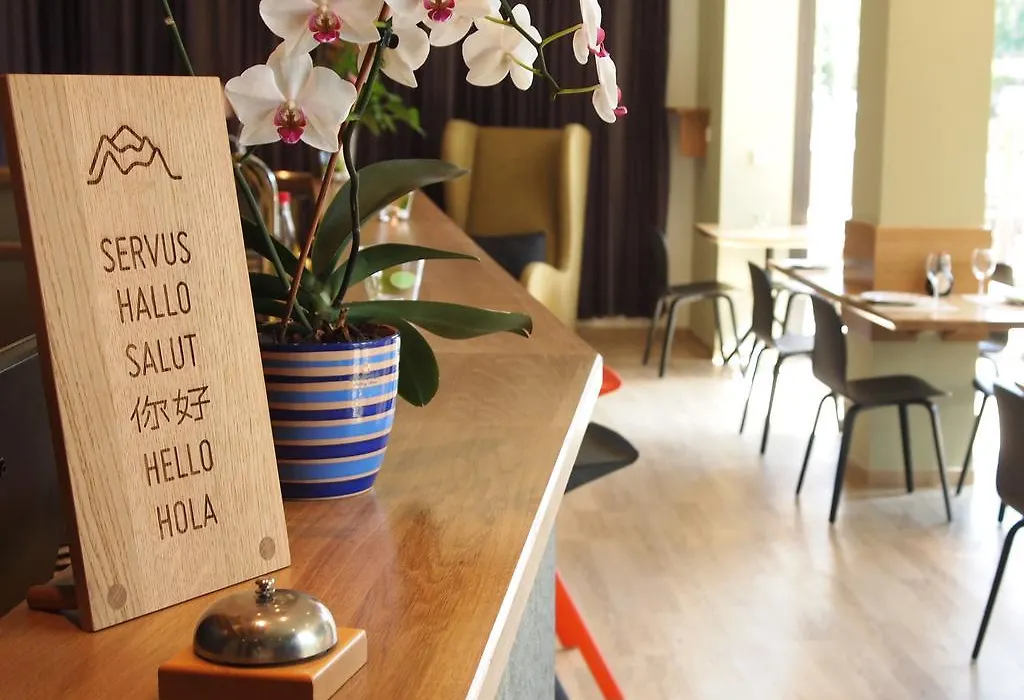 SERVUS
HALLO
SALUT
你好
HELLO
HOLA